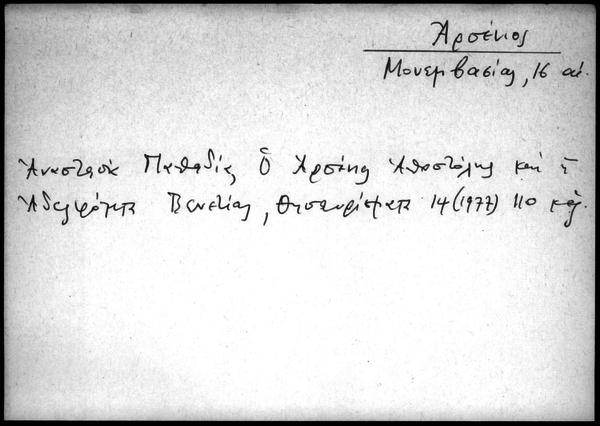 Ἀρσένιος
Μονεμβασίας, 16 αἰ.
Ἀναστασία Παπαδία, Ὁ Ἀρσένιος Ἀποστόλης καὶ ἡ
Ἀδελφότητα Βενετίας, Θησαυρίσματα 14 (1977) 110 κἑξ.